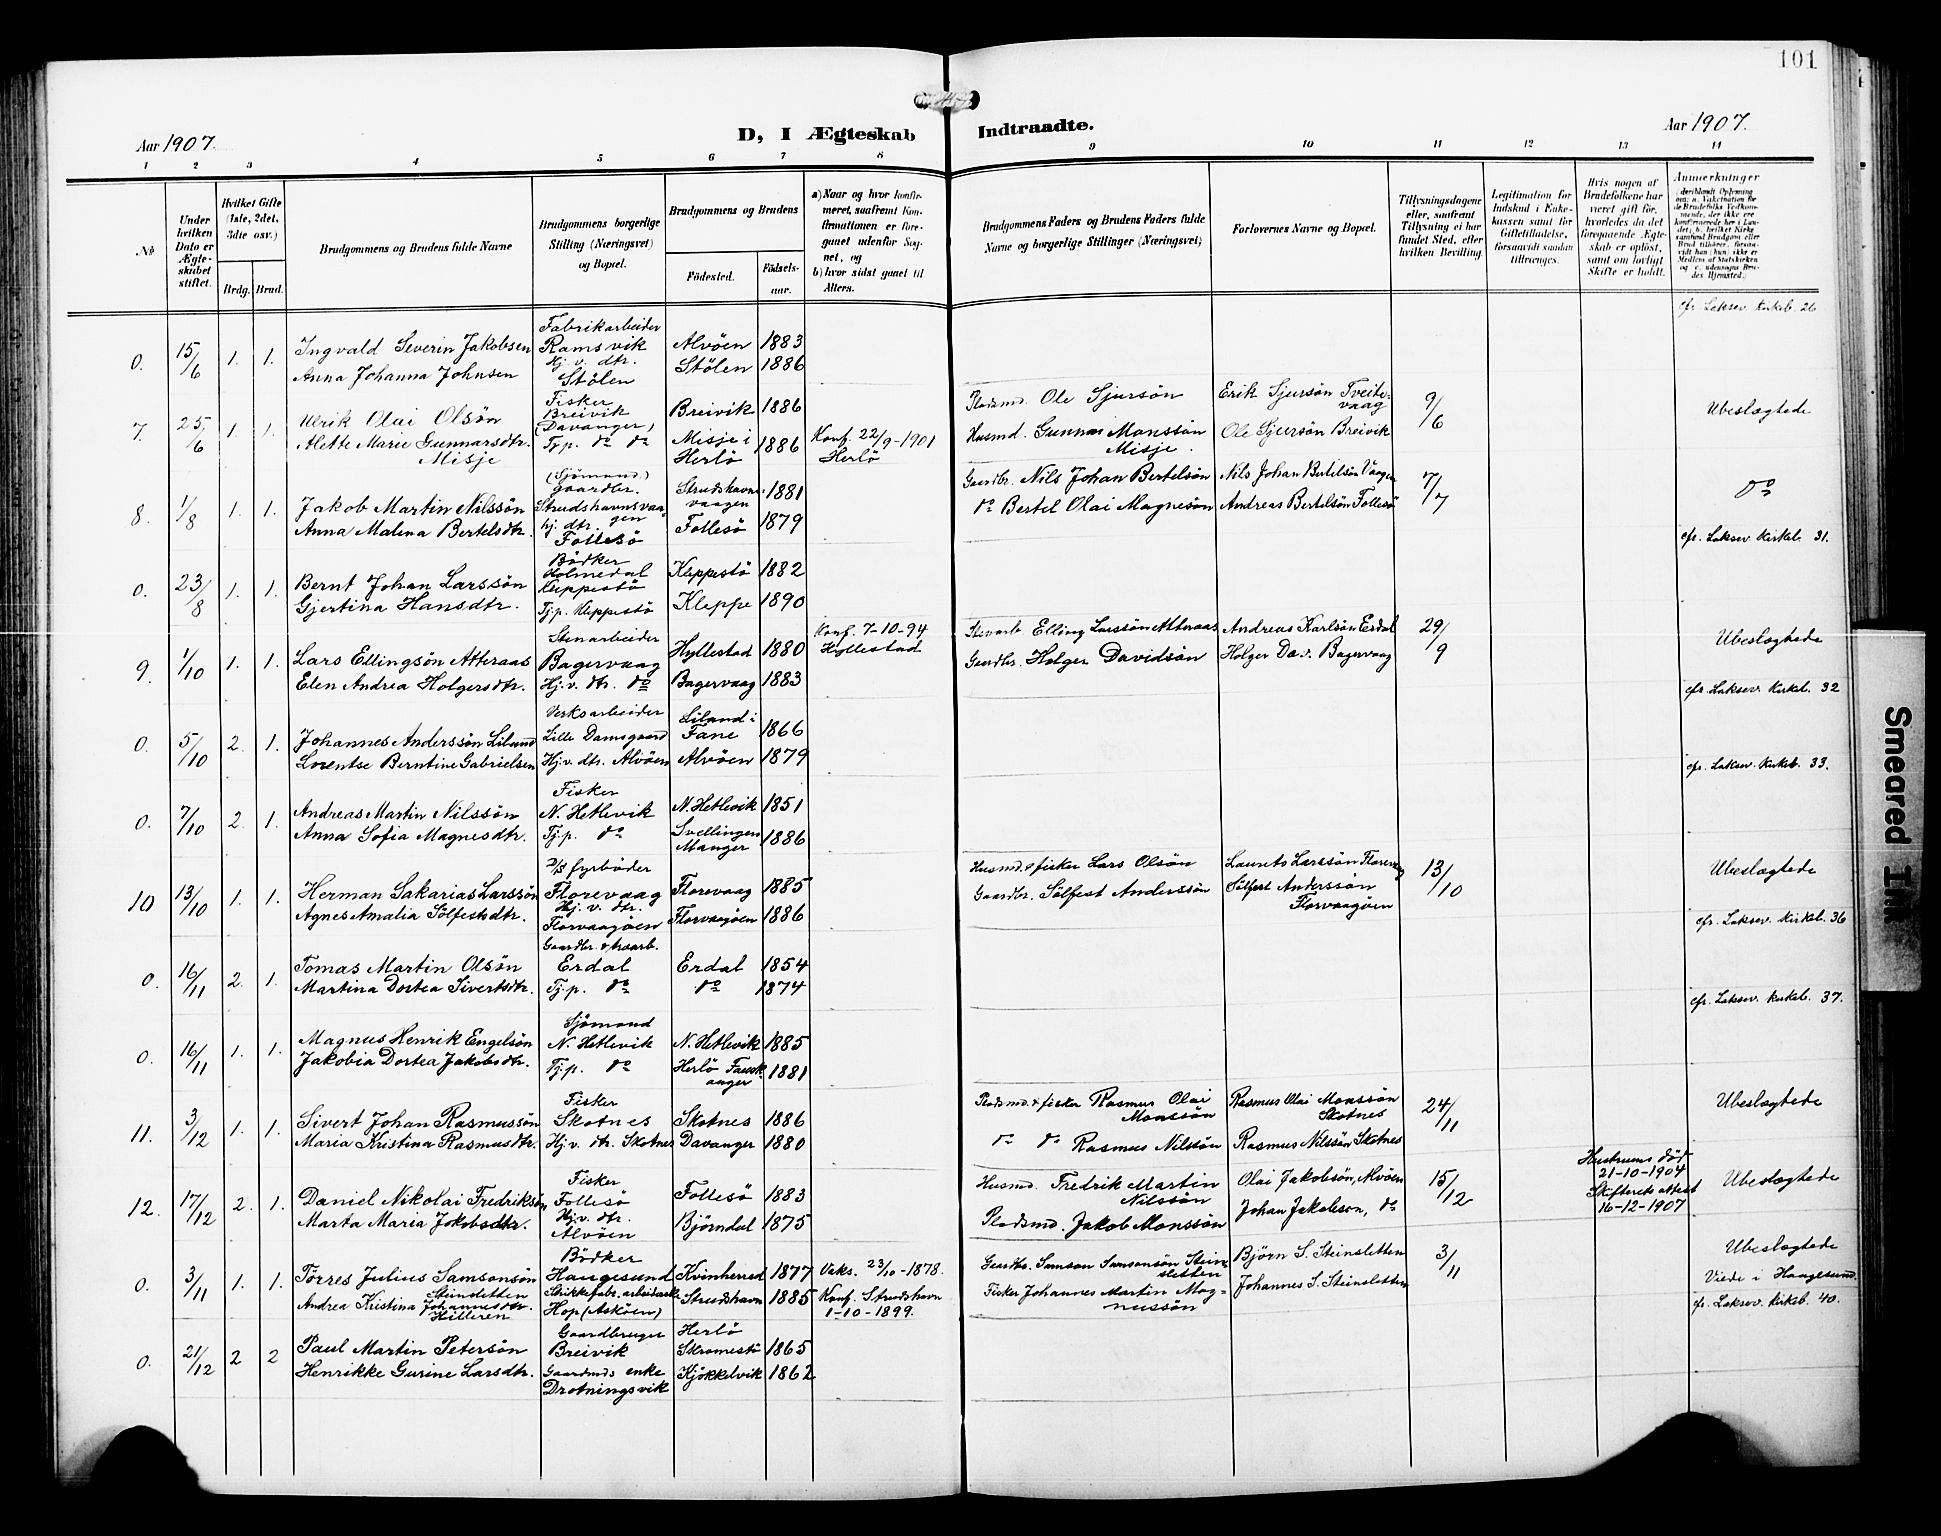 101
Aar 1907.
D, I Ægteskab Indtraadte.
Aar 1907.
1 2 3 4 5 6 7 8 9 10 11 12 13 14
No
Under hvilken Dato er Ægteskabet stiftet.
Hvilket Gifte (1ste, 2det, 3die osv.)
Brdg. Brud.
Brudgommens og Brudens fulde Navne
Brudgommens borgerlige Stilling (Næringsvei) og Bopæl.
Brudgommens og Brudens
Fødested.
Fødselsaar.
a) Naar og hvor konfirmeret, saafremt Konfirmationen er foregaaet udenfor Sognet, og
b) hvor sidst gaaet til Alters.
Brudgommens Faders og Brudens Faders fulde Navne og borgerlige Stillinger (Næringsvei)
Forlovernes Navne og Bopæl.
Tillysningsdagene eller, saafremt Tillysning ei har fundet Sted, efter hvilken Bevilling.
Legitimation for Indskud i Enkekassen samt for Giftetilladelse, forsaavidt saadan tiltrænges.
Hvis nogen af Brudefolkene har været gift før, hvorledes da det foregaaende Ægteskab er opløst, samt om lovligt Skifte er holdt.
Anmærkninger
(deriblandt Oplysning om: a. Vakcination for de Brudefolks Vedkommende, der ikke ere konfirmerede her i Landet; b. hvilket Kirkesamfund Brudgom eller Brud tilhører, forsaavidt han (hun) ikke er Medlem af Statskirken og c. udensogns Brudes Hjemsted.)
cfr. Laksev. Kirkeb. 26
0. 15/6 1. 1. Ingvald Severin Jakobsen
Anna Johanna Johnsen
Fabrikarbeider
Ramsvik
Hj. v. dtr.
Stölen
Alvöen 1883
Stölen 1886
7. 25/6 1. 1. Ulrik Olai Olsön
Alette Marie Gunnarsdtr.
Misje
Fisker
Breivik
(Davanger)
Tj.p. do do
Breivik 1886
Misje i
Herlö 1886
Konf. 22/9-1901
Herlö
Pladsmd. Ole Sjursön
Husmd. Gunnar Monssön
Misje.
Erik Sjursön Tveitevaag
Ole Sjursön Breivik
9/6
Ubeslægtede
8. 1/8 1. 1. Jakob Martin Nilssön
Anna Malena Bertelsdtr.
(Sjömand)
Gaardbr.
Strudshavnsvaagen
hj. dtr.
Follesö
Strudshavnsvaagen 1881
Follesö 1879
Gaardbr. Nils Johan Bertelsön
do Bertel Olai Magnesön
Nils Johan Bertelsön Vaagen
Andreas Bertelsön Follesö
7/7
do
cfr. Laksev. Kirkeb. 31.
0. 23/8 1. 1. Bernt Johan Larssön
Gjertina Hansdtr.
Bödker
Holmedal
Kleppestö
Tj.p. Kleppestö
Kleppestö 1882
Kleppe 1890
9. 1/10 1. 1. Lars Ellingsön Atteraas
Elen Andrea Holgersdtr.
Stenarbeider
Bagervaag
Hj. v. dtr. do
Hyllestad 1880
Bagervaag 1883
Konf. 7-10-94
Hyllestad
Stenarb. Elling Larssön Atteraas
Gaardbr. Holger Davidsön
Andreas Karlsön Erdal
Holger Dav. Bagervaag
29/9
Ubeslægtede
cfr. Laksev. Kirkeb. 32
0. 5/10 2. 1. Johannes Anderssön Liland
Lorentse Berntine Gabrielsen
Verksarbeider
Lille Damsgaard
Hj. v. dtr. Alvöen
Liland i
Fane 1866
Alvöen 1879
cfr. Laksev. Kirkeb. 33.
0. 7/10 2. 1. Andreas Martin Nilssön
Anna Sofia Magnesdtr.
Fisker
N. Hetlevik
Tj.p. do
N. Hetlevik 1851
Svellingen
Manger 1886
10 13/10 1. 1. Herman Sakarias Larssön
Agnes Amalia Sölfestsdtr.
D/S fyrböder
Florevaag
Hj. v. dtr.
Florvaagöen
Florevaag 1885
Florvaagöen 1886
Husmd. & fisker Lars Olsön
Gaardbr. Sölfest Anderssön
Laurits Larssön Florevaag
Sölfest Anderssön
Florvaagöen
13/10
Ubeslægtede
cfr. Laksev. Kirkeb. 36
0. 16/11 2. 1. Tomas Martin Olsön
Martina Dortea Sivertsdtr.
Gaardbr. &
Erdal
Tj.p. do
Erdal 1854
do 1874
cfr. Laksev. Kirkeb. 37.
0. 16/11 1. 1. Magnus Henrik Engelsön
Jakobia Dortea Jakobsdtr.
Sjömand
N. Hetlevik
Tj.p. do
N. Hetlevik 1885
Herlö Fauskanger 1881
11. 3/12 1. 1. Sivert Johan Rasmussön
Maria Kristina Rasmusdtr.
Fisker
Skotnes
Hj. v. dtr. Skotnes
Skotnes 1886
Davanger 1880
Pladsmd. & fisker Rasmus Olai
Monssön
do do Rasmus Nilssön
Rasmus Olai Monssön
Skotnes
Rasmus Nilssön Skotnes
24/11
Ubeslægtede
12. 17/12 2. 1. Daniel Nikolai Fredriksön
Marta Maria Jakobsdtr.
Fisker
Follesö
Hj. v. dtr.
Alvöen
Follesö 1883
Björndal 1875
Husmd. Fredrik Martin
Nilssön
Pladsmd. Jakob Monssön
Olai Jakobsön, Alvöen
Johan Jakobson, do
15/12
Hustruens död
21-10-1904
Skifterets attest
16-12-1907
Ubeslægtede
0. 3/11 1. 1. Törres Julius Samsonsön
Steinsletten
Andrea Kristina Johannesdtr.
Hilleren
Bödker
Haugesund
Strikkefab. arbeiderske
Hop (Asköen)
Kvinherred 1877
Strudshavn 1885
Vaks. 23/10-1878.
Konf. Strudshavn
1-10-1899.
Gaardbr. Samson Samsonsön Steinsletten
Fisker Johannes Martin Magnussön
Björn S. Steinsletten
Johannes S. Steinsletten
3/11
Ubeslægtede
Viede i Haugesund
cfr. Laksev. Kirkeb. 40.
0. 21/12 2 2 Paul Martin Petersön
Henrikke Gurine Larsdtr.
Gaardbruger
Breivik
Gaardmds enke
Drotningsvik
Herlö
Skromestö 1865
Kjökkelvik 1862
Smeared Ink